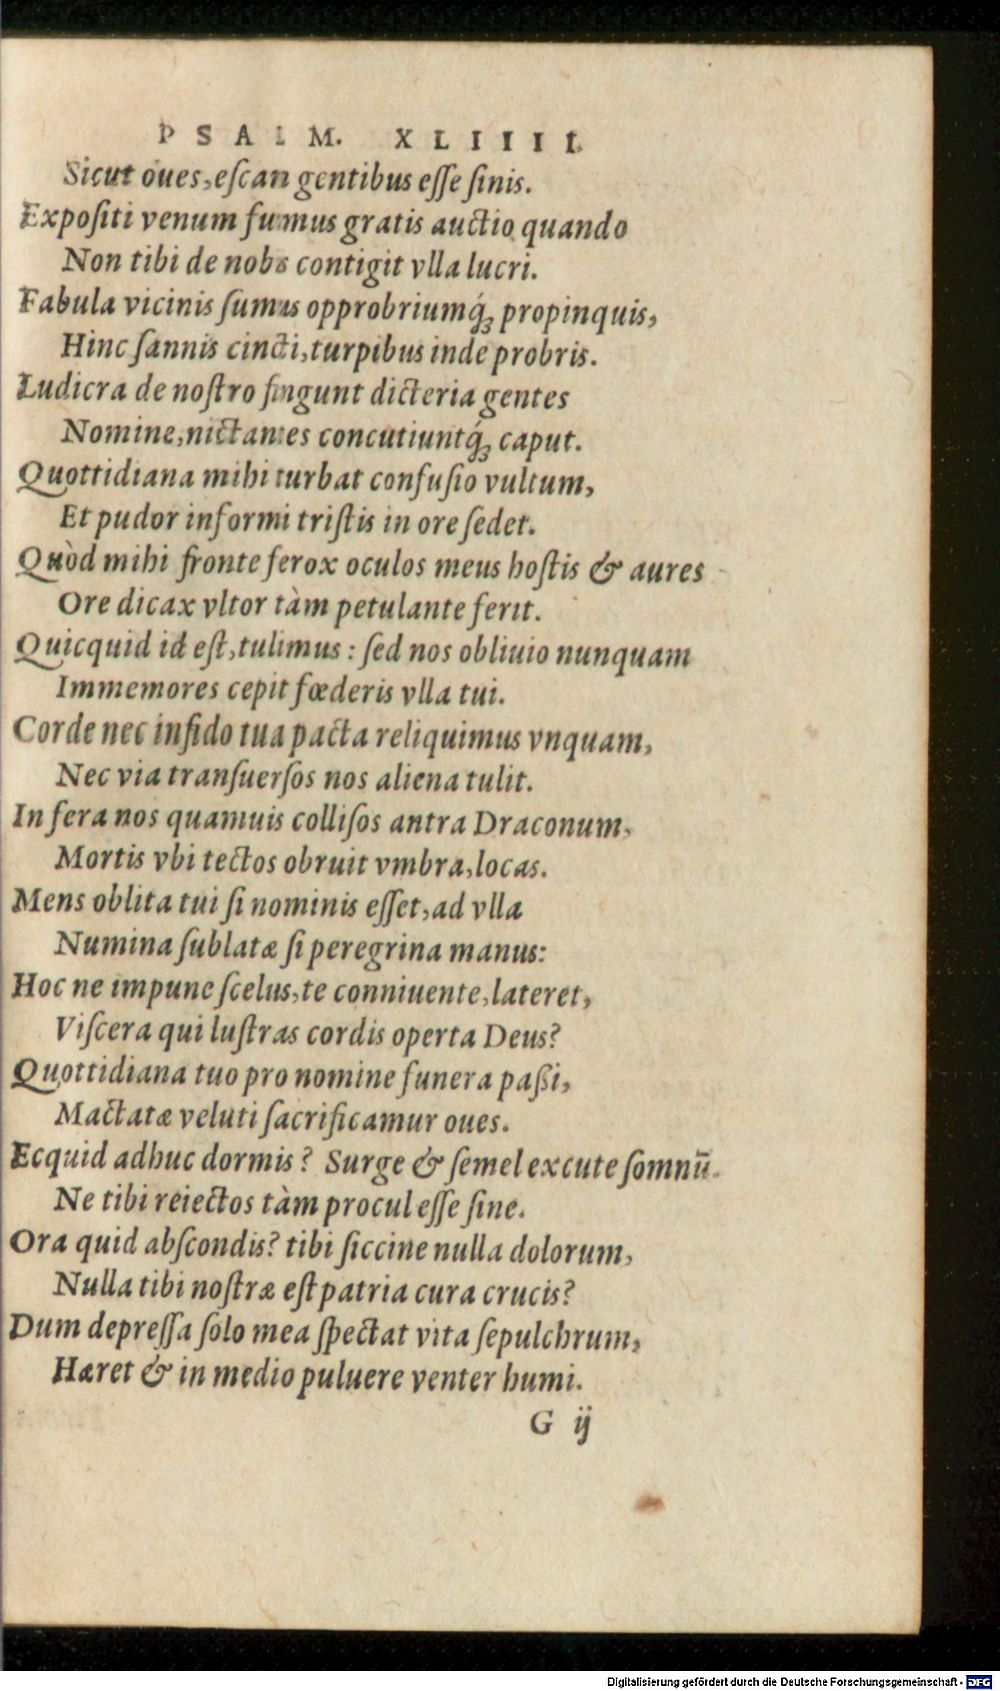 PSALM. XLIIII.
Sicut oues, eſcan gentibus eſſe ſinis.
Expoſiti venum fumus gratis auctio quando
Non tibi de nobs contigit vlla lucri.
Fabula vicinis ſumus opprobriumq́ꝫ propinquis,
Hinc ſannis cincti, turpibus inde probris.
Ludicra de noſtro fingunt dicteria gentes
Nomine, nictantes concutiuntq́ꝫ caput.
Quottidiana mihi turbat confuſio vultum,
Et pudor informi triſtis in ore ſedet.
Quòd mihi fronte ferox oculos meus hoſtis & aures
Ore dicax vltor tàm petulante ferit.
Quicquid id eſt, tulimus: ſed nos obliuio nunquam
Immemores cepit fœderis vlla tui.
Corde nec infido tua pacta reliquimus vnquam,
Nec via tranſuerſos nos aliena tulit.
In fera nos quamuis colliſos antra Draconum,
Mortis vbi tectos obruit vmbra, locas.
Mens oblita tui ſi nominis eſſet, ad vlla
Numina ſublatæ ſi peregrina manus:
Hoc ne impune ſcelus, te conniuente, lateret,
Viſcera qui luſtras cordis operta Deus?
Quottidiana tuo pro nomine funera paßi,
Mactatæ veluti ſacrificamur oues.
Ecquid adhuc dormis? Surge & ſemel excute ſomnū.
Ne tibi reiectos tàm procul eſſe ſine.
Ora quid abſcondis? tibi ſiccine nulla dolorum,
Nulla tibi noſtræ eſt patria cura crucis?
Dum depreſſa ſolo mea ſpectat vita ſepulchrum,
Hæret & in medio puluere venter humi.
G ij
Digitalisierung gefördert durch die Deutsche Forschungsgemeinschaft - DFG